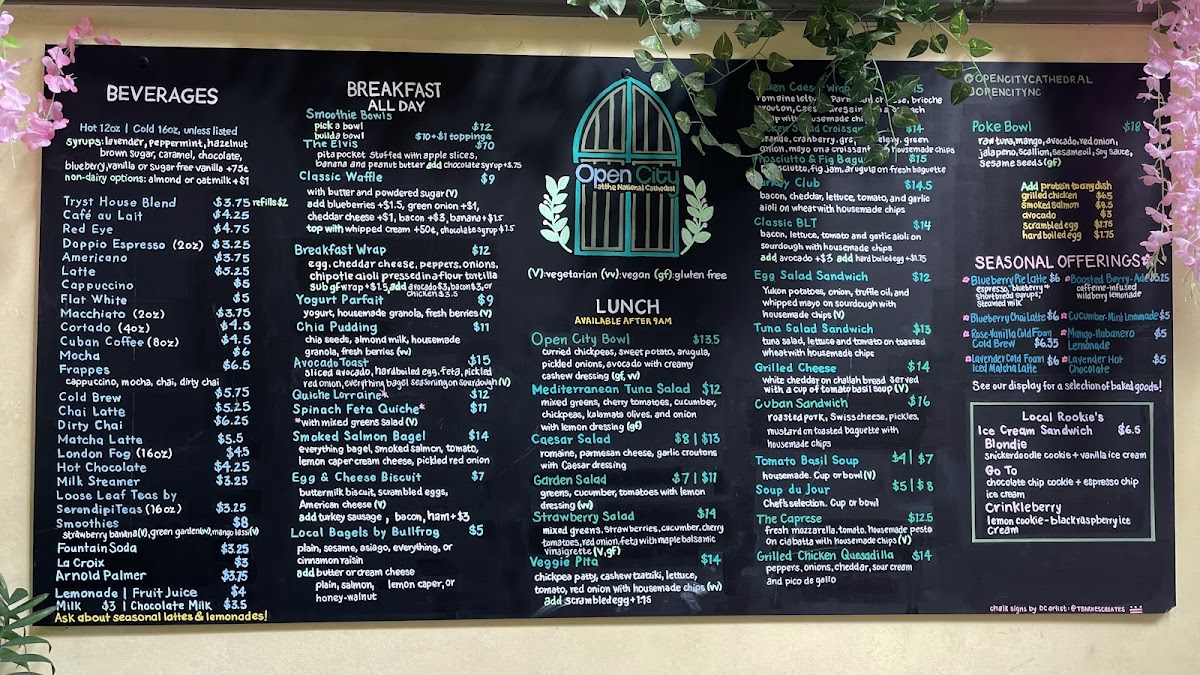 BEVERAGES
Hot 12oz | Cold 16oz, unless listed
syrups: lavender, peppermint, hazelnut
brown sugar, caramel, chocolate,
blueberry, vanilla or sugar free vanilla +75¢
non-dairy options: almond or oatmilk +$1
Tryst House Blend $3.75 refills $2
Café au Lait $4.25
Red Eye $4.75
Doppio Espresso (2oz) $3.25
Americano $3.75
Latte $5.25
Cappuccino $5
Flat White $5
Macchiato (2oz) $3.75
Cortado (4oz) $4.5
Cuban Coffee (8oz) $4.5
Mocha $6
Frappes $6.5
cappuccino, mocha, chai, dirty chai
Cold Brew $5.75
Chai Latte $5.25
Dirty Chai $6.25
Matcha Latte $5.5
London Fog (16oz) $4.5
Hot Chocolate $4.25
Milk Steamer $3.25
Loose Leaf Teas by
SerendipiTeas (16oz) $3.25
Smoothies $8
strawberry banana (V), green garden (vv), mango lassi (V)
Fountain Soda $3.25
La Croix $3
Arnold Palmer $3.75
Lemonade | Fruit Juice $4
Milk $3 | Chocolate Milk $3.5
Ask about seasonal lattes & lemonades!
BREAKFAST
ALL DAY
Smoothie Bowls
pick a bowl $12
build a bowl $10+$1 toppings
The Elvis $10
pita pocket stuffed with apple slices,
banana and peanut butter add chocolate syrup +$.75
Classic Waffle $9
with butter and powdered sugar (V)
add blueberries +$1.5, green onion +$1,
cheddar cheese +$1, bacon +$3, banana +$1.5
top with whipped cream +50¢, chocolate syrup $1.5
Breakfast Wrap $12
egg, cheddar cheese, peppers, onions,
chipotle aioli pressed in a flour tortilla
sub gf wrap +$1.5, add avocado $3, bacon $3, or
chicken $3.5
Yogurt Parfait $9
yogurt, housemade granola, fresh berries (V)
Chia Pudding $11
chia seeds, almond milk, housemade
granola, fresh berries (vv)
Avocado Toast $15
sliced avocado, hardboiled egg, feta, pickled
red onion, everything bagel seasoning on sourdough (V)
Quiche Lorraine* $12
Spinach Feta Quiche* $11
*with mixed greens salad (V)
Smoked Salmon Bagel $14
everything bagel, smoked salmon, tomato,
lemon caper cream cheese, pickled red onion
Egg & Cheese Biscuit $7
buttermilk biscuit, scrambled eggs,
American cheese (V)
add turkey sausage, bacon, ham +$3
Local Bagels by Bullfrog $5
plain, sesame, asiago, everything, or
cinnamon raisin
add butter or cream cheese
plain, salmon, lemon caper, or
honey-walnut
Open City
at the National Cathedral
(V):vegetarian (vv):vegan (gf):gluten free
LUNCH
AVAILABLE AFTER 9AM
Open City Bowl $13.5
curried chickpeas, sweet potato, arugula,
pickled onions, avocado with creamy
cashew dressing (gf, vv)
Mediterranean Tuna Salad $12
mixed greens, cherry tomatoes, cucumber,
chickpeas, kalamata olives, and onion
with lemon dressing (gf)
Caesar Salad $8 | $13
romaine, parmesan cheese, garlic croutons
with Caesar dressing
Garden Salad $7 | $11
greens, cucumber, tomatoes with lemon
dressing (vv)
Strawberry Salad $14
mixed greens, strawberries, cucumber, cherry
tomatoes, red onion, feta with maple balsamic
vinaigrette (V, gf)
Veggie Pita $14
chickpea patty, cashew tzatziki, lettuce,
tomato, red onion with housemade chips (vv)
add scrambled egg +1.75
Caesar Wrap
cheese, brioche
with housemade chips
Croissant $14
cranberry, green
onion, mayo on a croissant housemade chips
Prosciutto & Fig $15
prosciutto, fig jam, arugula on fresh baguette
Club $14.5
bacon, cheddar, lettuce, tomato, and garlic
aioli on wheat with housemade chips
Classic BLT $14
bacon, lettuce, tomato and garlic aioli on
sourdough with housemade chips
add avocado +$3 add hard boiled egg +$1.75
Egg Salad Sandwich $12
Yukon potatoes, onion, truffle oil, and
whipped mayo on sourdough with
housemade chips (V)
Tuna Salad Sandwich $13
tuna salad, lettuce and tomato on toasted
wheat with housemade chips
Grilled Cheese $14
white cheddar on challah bread served
with a cup of tomato basil soup (V)
Cuban Sandwich $16
roasted pork, Swiss cheese, pickles,
mustard on toasted baguette with
housemade chips
Tomato Basil Soup $4 | $7
housemade. Cup or bowl (V)
Soup du Jour $5 | $8
Chefs selection. Cup or bowl
The Caprese $12.5
fresh mozzarella, tomato, housemade pesto
on ciabatta with housemade chips (V)
Grilled Chicken Quesadilla $14
peppers, onions, cheddar, sour cream
and pico de gallo
@OPENCITYCATHEDRAL
@OPENCITYNC
Poke Bowl $18
raw tuna, mango, avocado, red onion,
jalapeno, scallion, sesame oil, soy sauce,
sesame seeds (gf)
Add protein to any dish
grilled chicken $6.5
smoked salmon $8.5
avocado $3
scrambled egg $1.75
hard boiled egg $1.75
SEASONAL OFFERINGS*
*Blueberry Pie Latte $6 *Boosted Berry-Ade $5.25
espresso, blueberry + shortbread syrups, steamed milk
caffeine-infused wild berry lemonade
*Blueberry Chai Latte $6 *Cucumber-Mint Lemonade $5
*Rose-Vanilla Cold Foam Cold Brew $6.35 *Mango-Habanero Lemonade $5
*Lavender Cold Foam Iced Matcha Latte $6 *Lavender Hot Chocolate $5
See our display for a selection of baked goods!
Local Rookie's
Ice Cream Sandwich $6.5
Blondie
snickerdoodle cookie + vanilla ice cream
Go To
chocolate chip cookie + espresso chip
ice cream
Crinkleberry
lemon cookie - black raspberry ice
cream
chalk signs by DC artist: @TBARNESCREATES